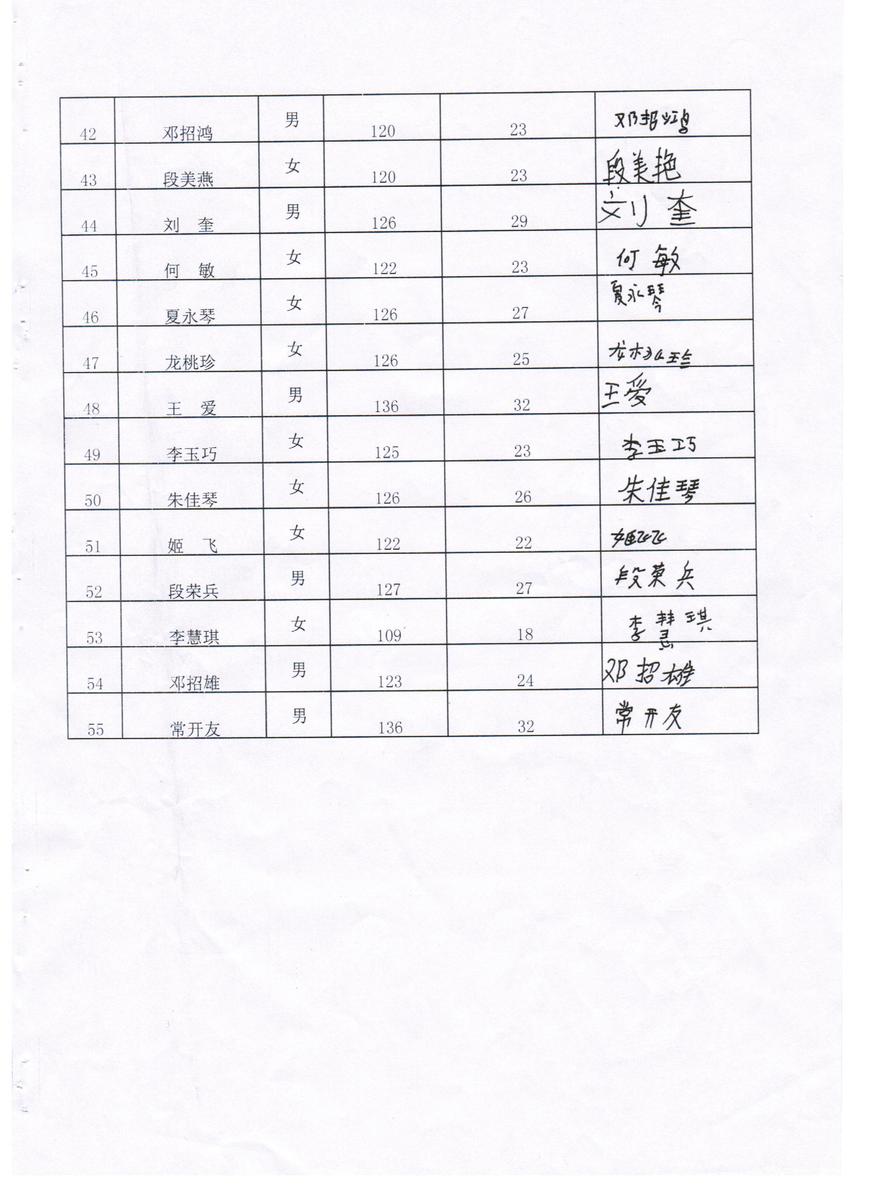 42 邓招鸿 男 120 23 邓招鸿
43 段美燕 女 120 23 段美艳
44 刘 奎 男 126 29 刘 奎
45 何 敏 女 122 23 何 敏
46 夏永琴 女 126 27 夏永琴
47 龙桃珍 女 126 25 龙桃珍
48 王 爱 男 136 32 王爱
49 李玉巧 女 125 23 李玉巧
50 朱佳琴 女 126 26 朱佳琴
51 姬 飞 女 122 22 姬飞
52 段荣兵 男 127 27 段荣兵
53 李慧琪 女 109 18 李慧琪
54 邓招雄 男 123 24 邓招雄
55 常开友 男 136 32 常开友